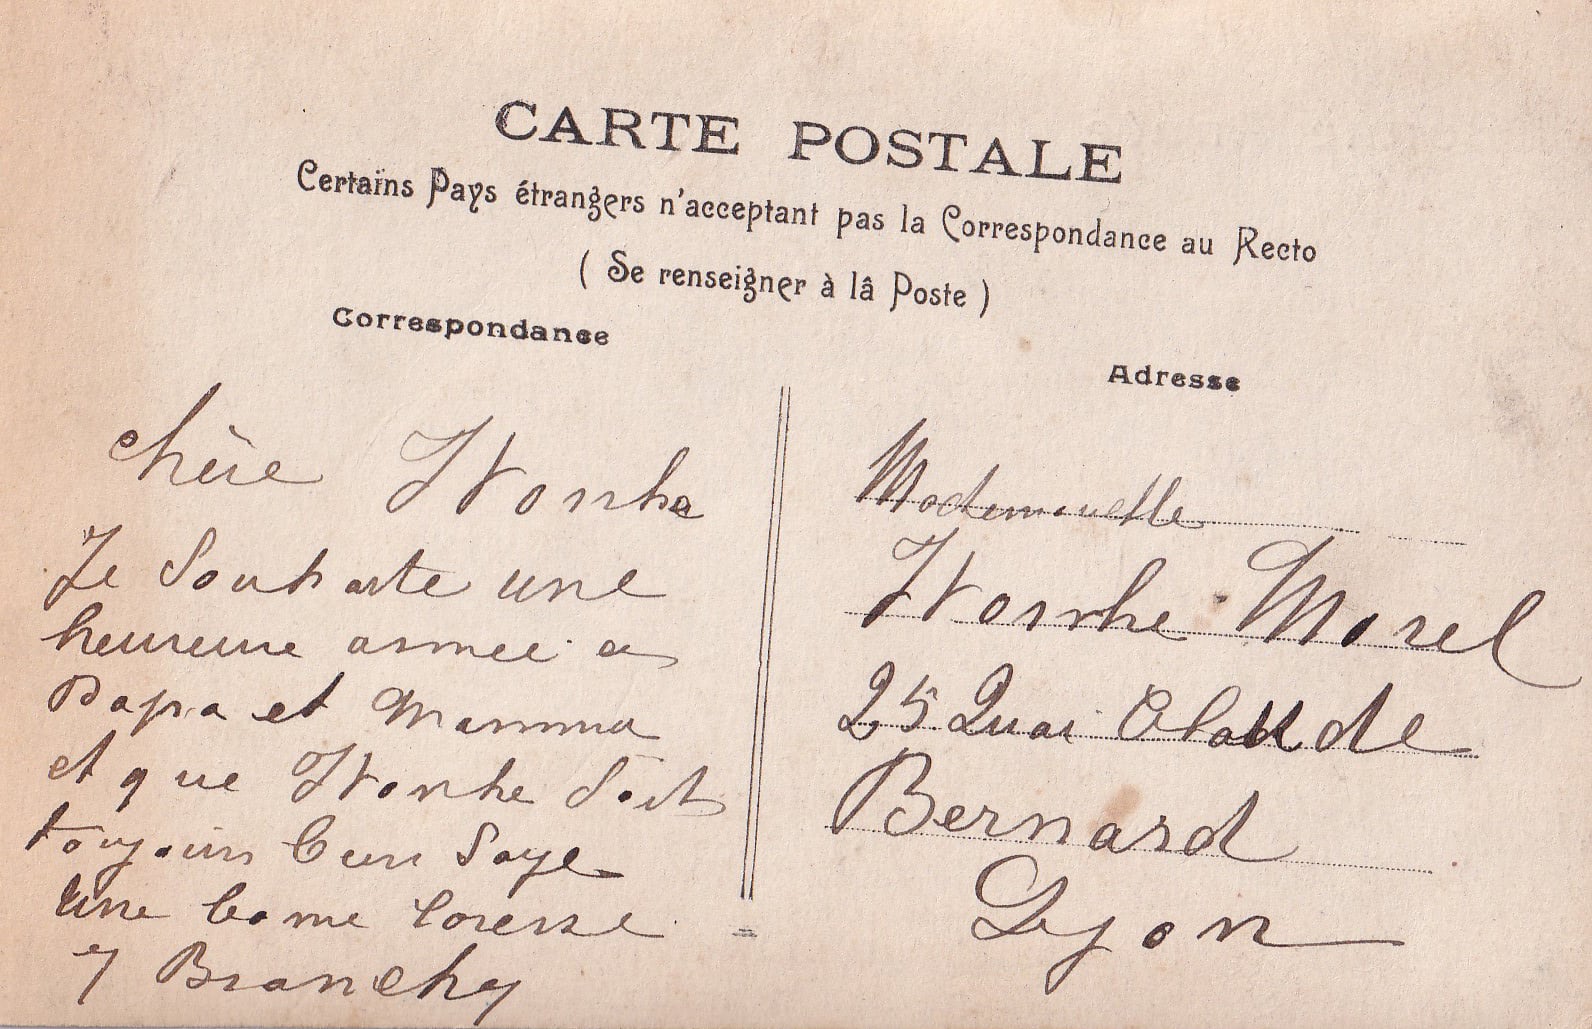 CARTE POSTALE
Certains Pays étrangers n'acceptant pas la Correspondance au Recto
( Se renseigner à lâ Poste )
Correspondance
Adresse
Chère Yvonne
Je Souhaite une
heureuse année a
Papa et Maman
et que Yvonne Soit
toujours bien Sage
une bonne Caresse
Branchy
Mademoiselle
Yvonne Morel
25 Quai Claude
Bernard
Lyon